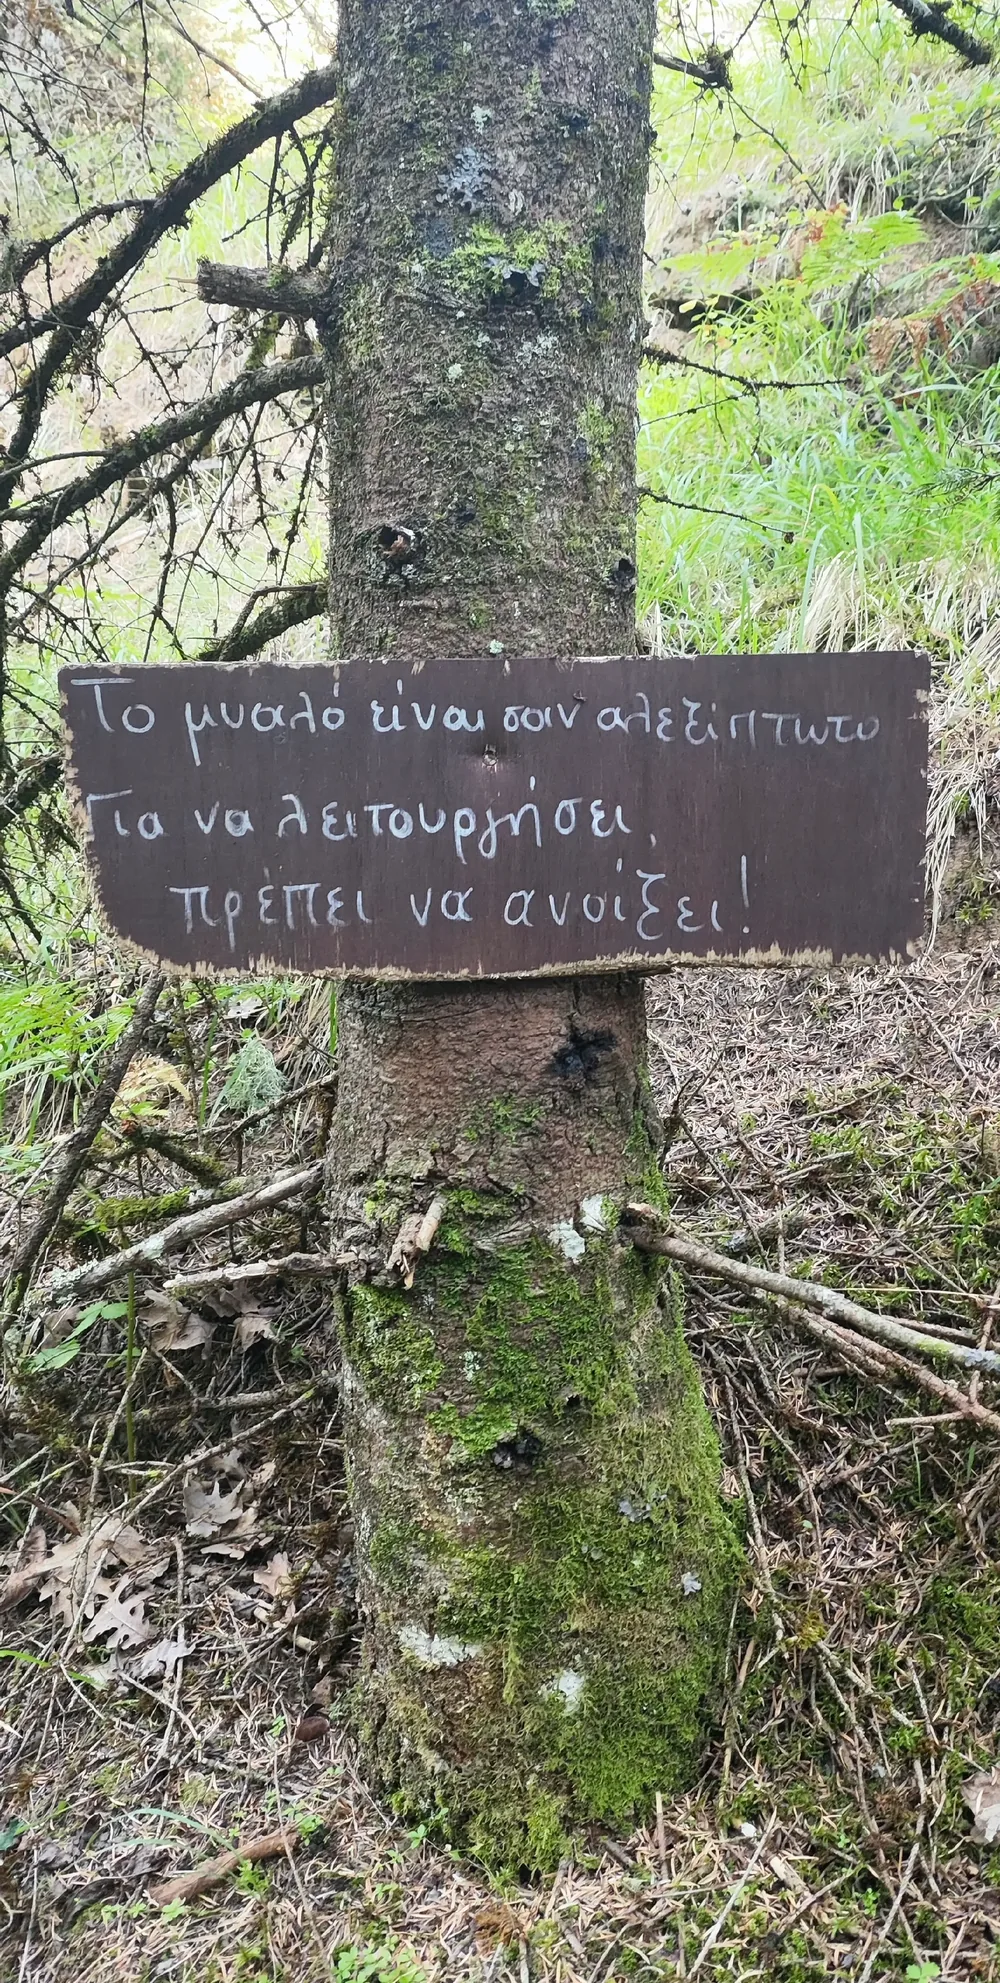 Το μυαλό είναι σαν αλεξίπτωτο
Για να λειτουργήσει,
πρέπει να ανοίξει!